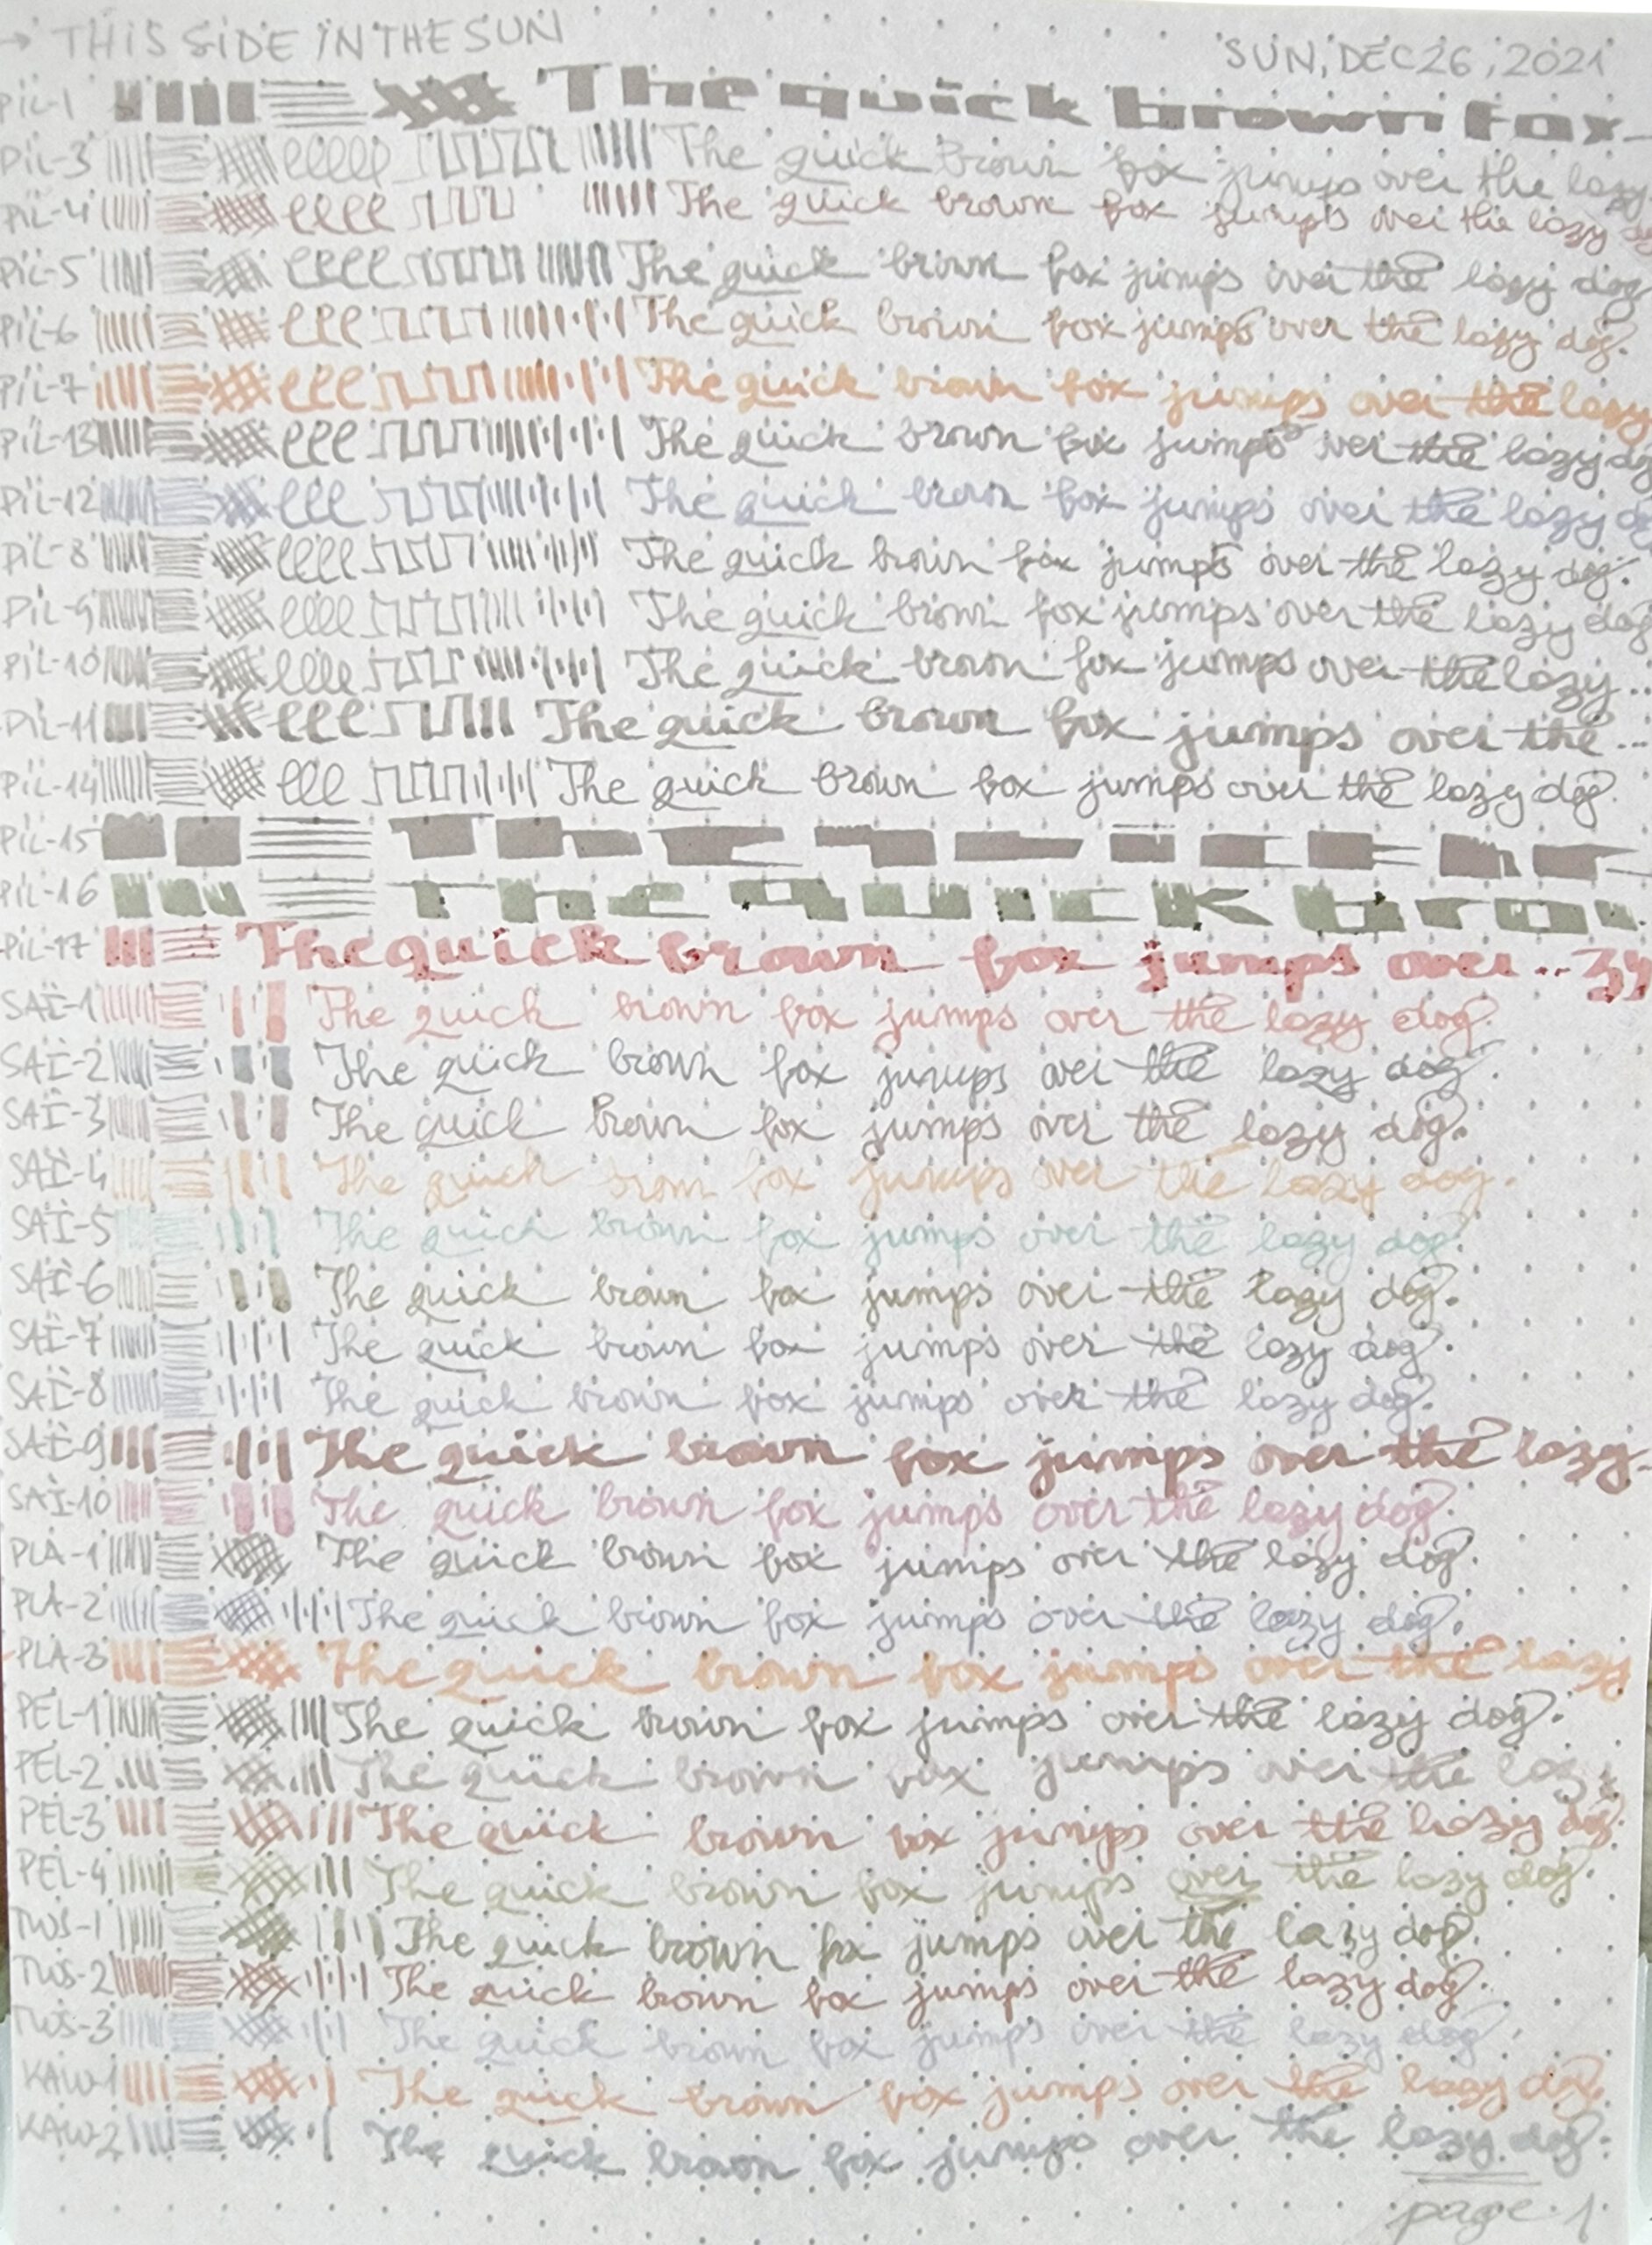 → THIS SIDE IN THE SUN
SUN, DEC 26, 2021
PIL-1 The quick brown fox
PIL-3 The quick brown fox jumps over the lazy
PIL-4 The quick brown fox jumps over the lazy
PIL-5 The quick brown fox jumps over the lazy dog
PIL-6 The quick brown fox jumps over the lazy dog.
PIL-7 The quick brown fox jumps over the lazy
PIL-13 The quick brown fox jumps over the lazy dog
PIL-12 The quick brown fox jumps over the lazy
PIL-8 The quick brown fox jumps over the lazy dog.
PIL-9 The quick brown fox jumps over the lazy dog
PIL-10 The quick brown fox jumps over the lazy...
PIL-11 The quick brown fox jumps over the...
PIL-14 The quick brown fox jumps over the lazy dog.
PIL-15 The
PIL-16 The quick brow
PIL-17 The quick brown fox jumps over...zy
SAI-1 The quick brown fox jumps over the lazy dog.
SAI-2 The quick brown fox jumps over the lazy dog.
SAI-3 The quick brown fox jumps over the lazy dog.
SAI-4 The quick brown fox jumps over the lazy dog.
SAI-5 The quick brown fox jumps over the lazy dog.
SAI-6 The quick brown fox jumps over the lazy dog.
SAI-7 The quick brown fox jumps over the lazy dog.
SAI-8 The quick brown fox jumps over the lazy dog.
SAI-9 The quick brown fox jumps over the lazy
SAI-10 The quick brown fox jumps over the lazy dog.
PLA-1 The quick brown fox jumps over the lazy dog.
PLA-2 The quick brown fox jumps over the lazy dog.
PLA-3 The quick brown fox jumps over the lazy
PEL-1 The quick brown fox jumps over the lazy dog.
PEL-2 The quick brown vox jumps over the lazy
PEL-3 The quick brown fox jumps over the lazy dog.
PEL-4 The quick brown fox jumps over the lazy dog.
TWS-1 The quick brown fox jumps over the lazy dog.
TWS-2 The quick brown fox jumps over the lazy dog.
TWS-3 The quick brown fox jumps over the lazy dog.
KAW-1 The quick brown fox jumps over the lazy dog.
KAW-2 The quick brown fox jumps over the lazy dog.
page 1